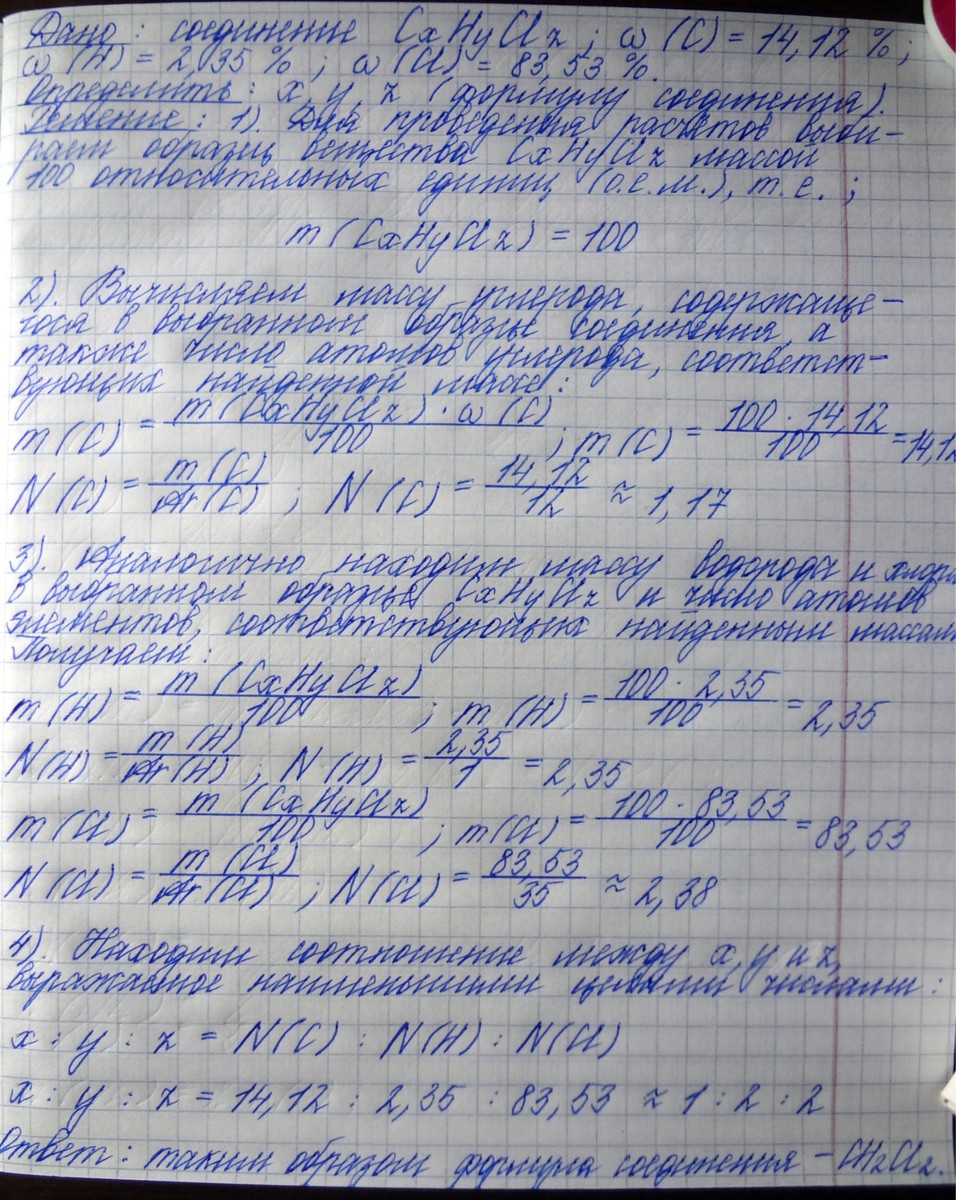 Дано: соединение CxHyClz; ω(C) = 14,12 %;
ω(H) = 2,35 %; ω(Cl) = 83,53 %.
Определить: x, y, z (формулу соединения).
Решение: 1). Для проведения расчётов выби-
раем образец вещества CxHyClz массой
100 относительных единиц (о.е.м.), т.е.;
m(CxHyClz) = 100
2). Вычисляем массу углерода, содержаще-
гося в выбранном образце соединения, а
также число атомов углерода, соответст-
вующих найденной массе:
m(C) = m(CxHyClz) · ω(C) / 100 ; m(C) = 100 · 14,12 / 100 = 14,12
N(C) = m(C) / Ar(C) ; N(C) = 14,12 / 12 ≈ 1,17
3). Аналогично находим массу водорода и хлора
в выбранном образце CxHyClz и число атомов
элементов, соответствующих найденным массам.
Получаем:
m(H) = m(CxHyClz) / 100 ; m(H) = 100 · 2,35 / 100 = 2,35
N(H) = m(H) / Ar(H) ; N(H) = 2,35 / 1 = 2,35
m(Cl) = m(CxHyClz) / 100 ; m(Cl) = 100 · 83,53 / 100 = 83,53
N(Cl) = m(Cl) / Ar(Cl) ; N(Cl) = 83,53 / 35 ≈ 2,38
4). Находим соотношение между x, y и z,
выражаемое наименьшими целыми числами:
x : y : z = N(C) : N(H) : N(Cl)
x : y : z = 14,12 : 2,35 : 83,53 ≈ 1 : 2 : 2
Ответ: таким образом формула соединения – CH2Cl2.